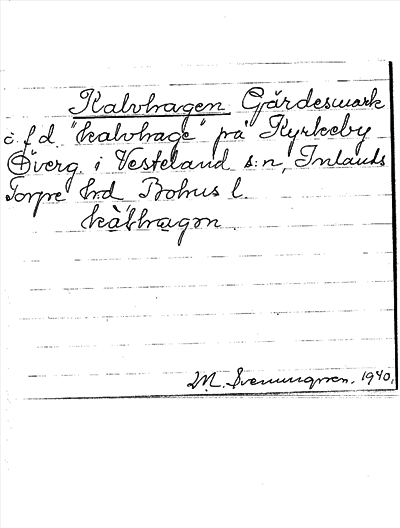 Kalvhagen Gärdesmark
i f.d. "kalvhage" på Kyrkeby
Överg. i Västerland s:n, Inlands
Torpe hd Bohus l.
M. Svenungsson. 1940.